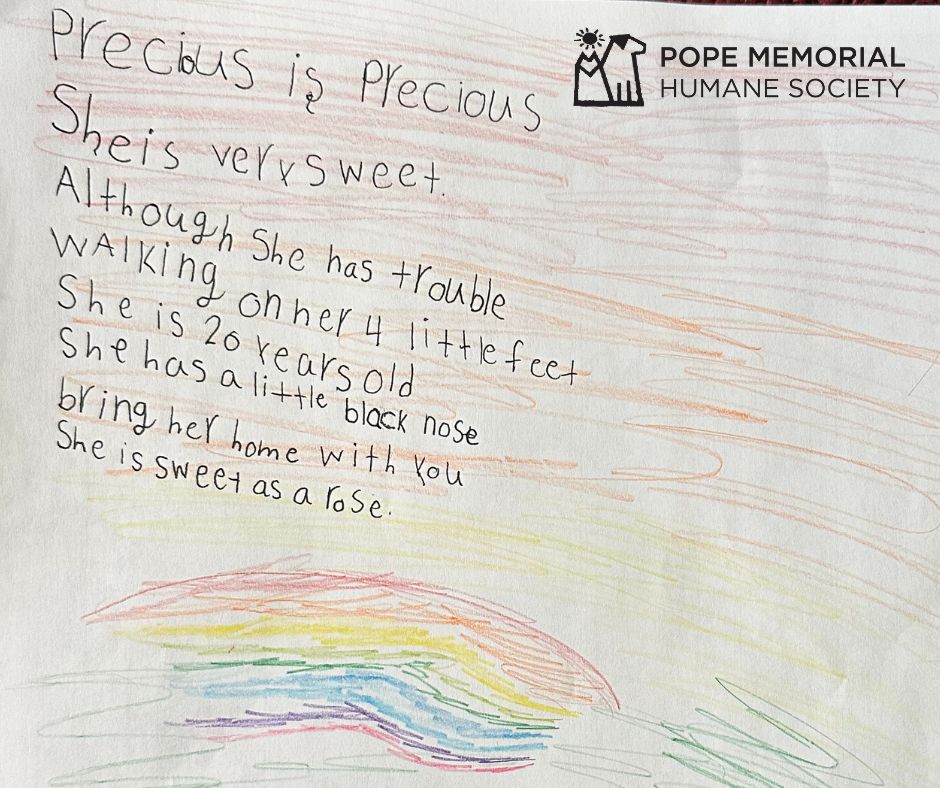 Precious is Precious
POPE MEMORIAL
HUMANE SOCIETY
She is very sweet.
Although She has trouble
WAlking on her 4 little feet
She is 20 years old
She has a little black nose
bring her home with you
She is sweet as a rose.